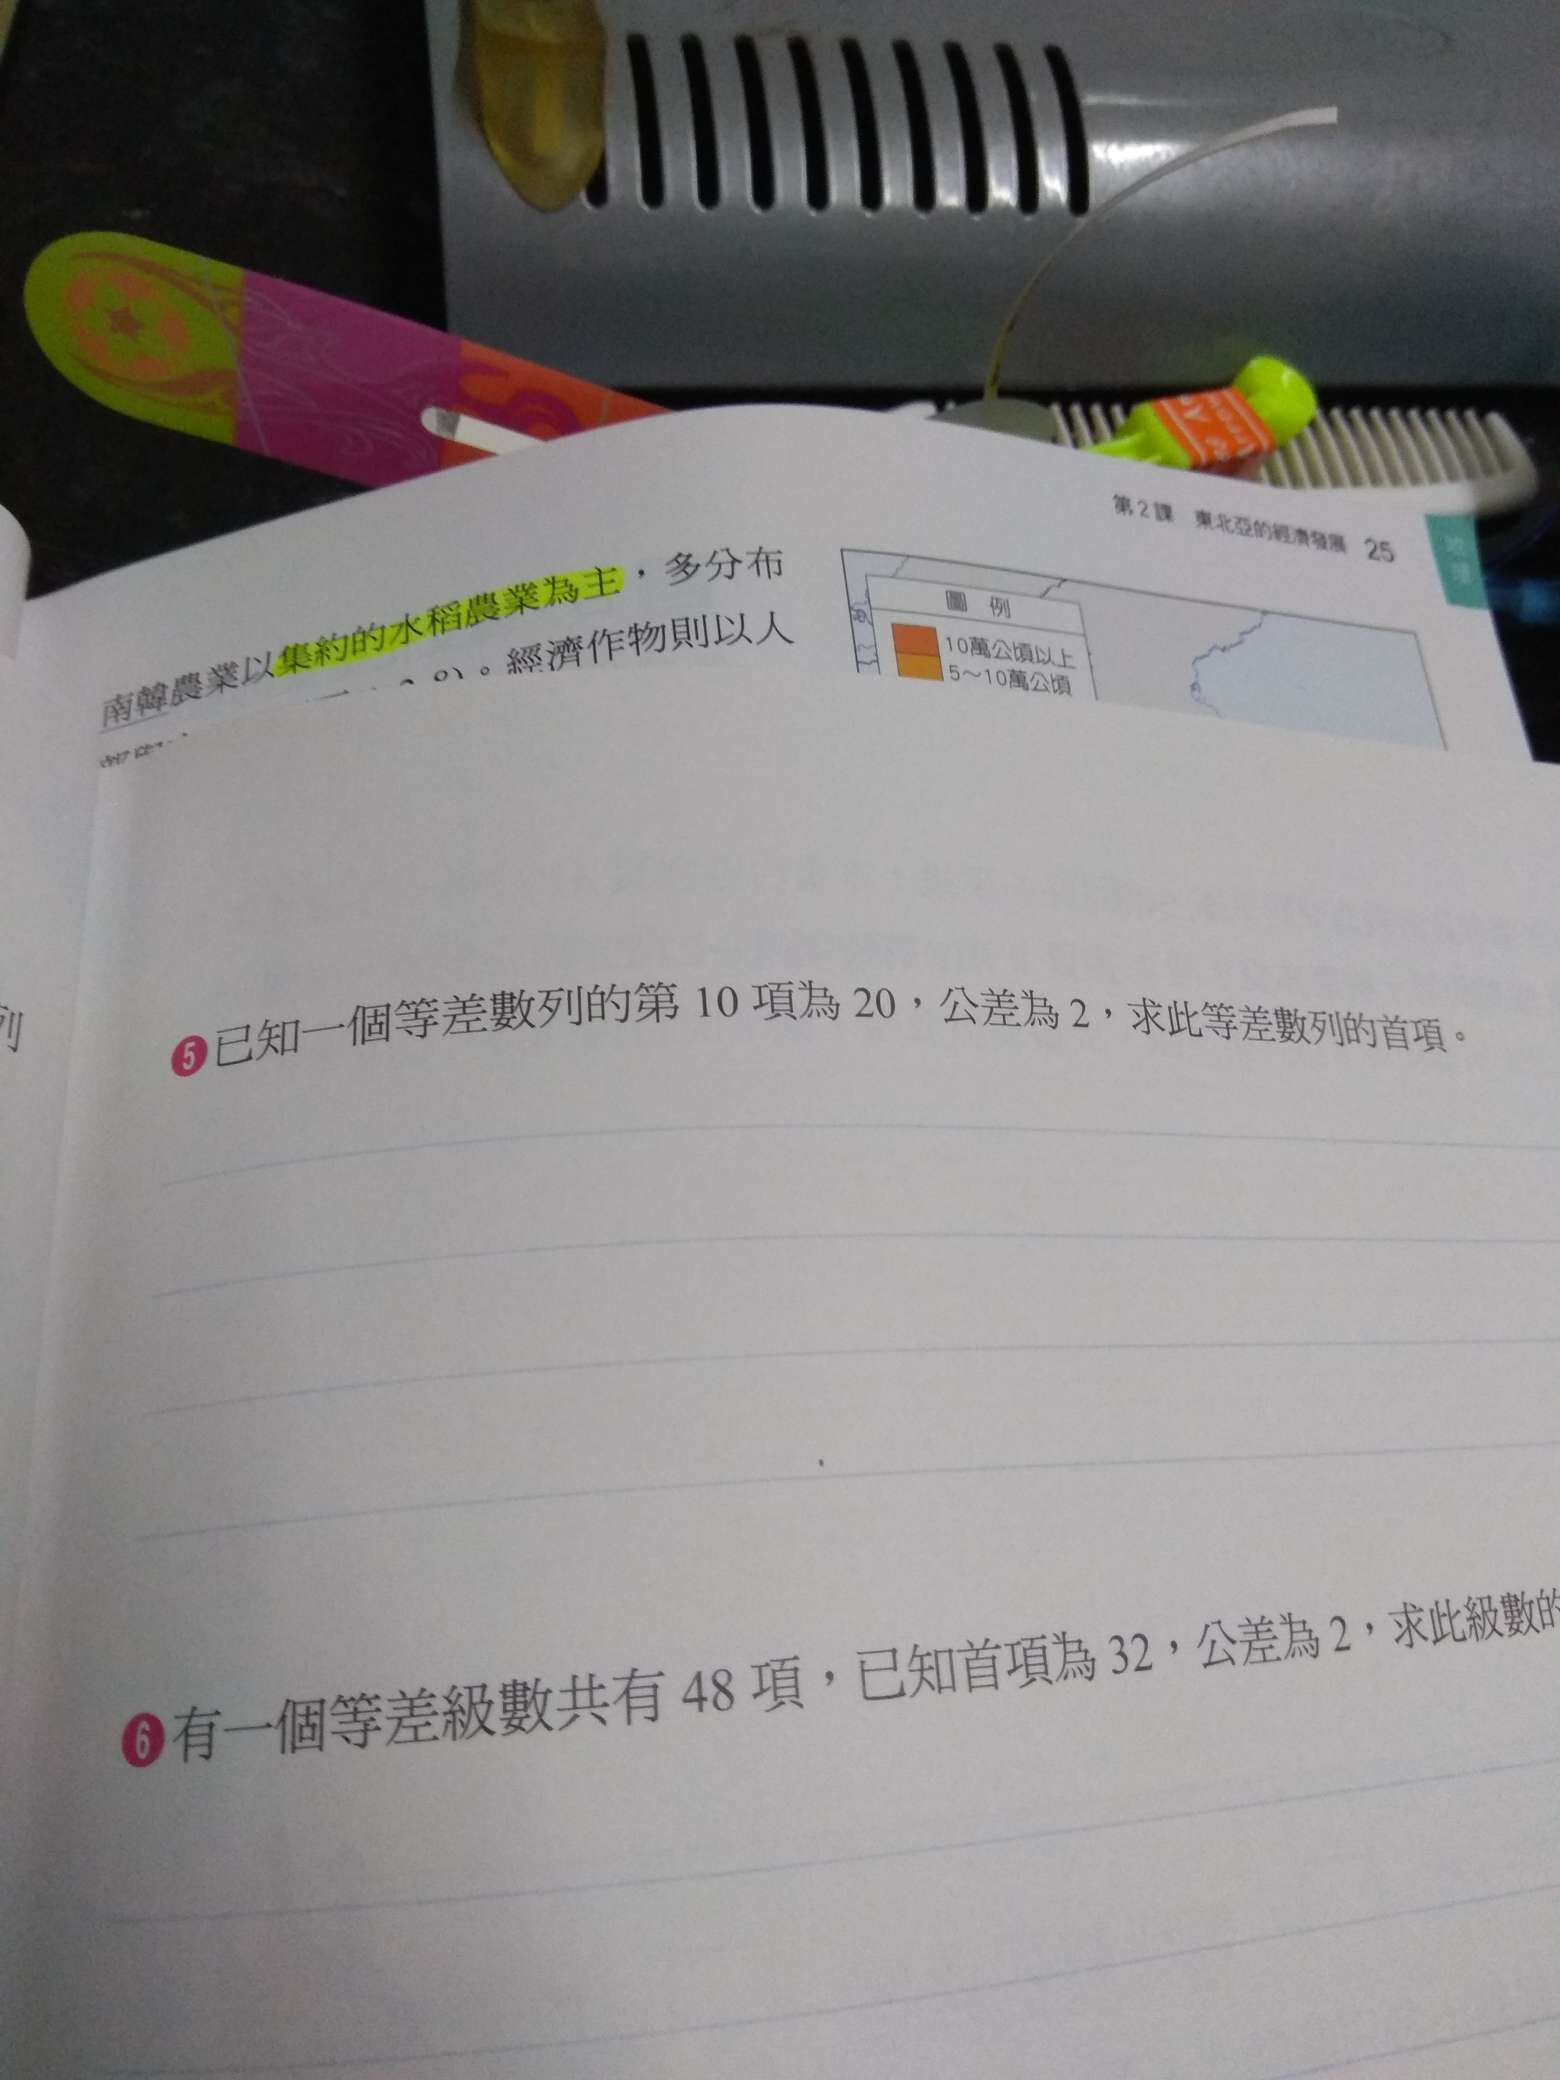 第2課 東北亞的經濟發展 25
地理
南韓農業以集約的水稻農業為主，多分布
。經濟作物則以人
圖 例
10萬公頃以上
5～10萬公頃
列
5 已知一個等差數列的第 10 項為 20，公差為 2，求此等差數列的首項。
6 有一個等差級數共有 48 項，已知首項為 32，公差為 2，求此級數的